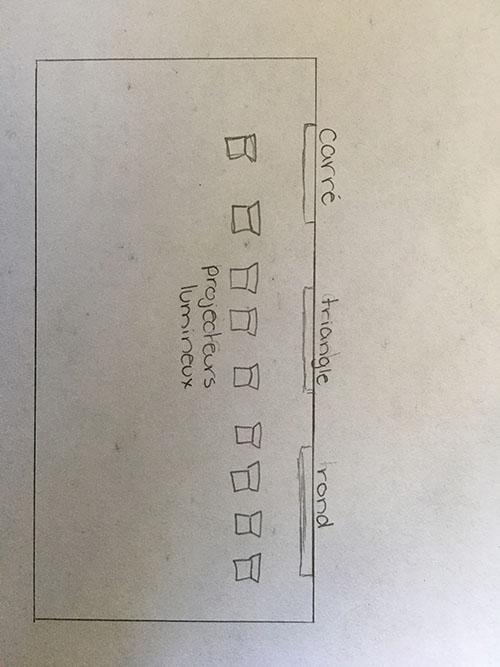 carré
triangle
rond
projecteurs
lumineux